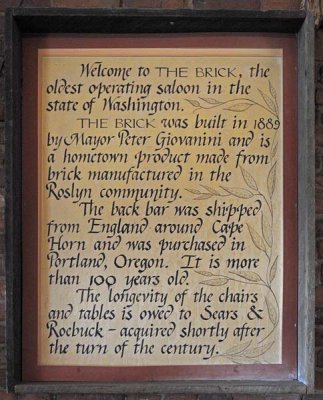 Welcome to THE BRICK, the
oldest operating saloon in the
state of Washington.
THE BRICK was built in 1889
by Mayor Peter Giovanini and is
a hometown product made from
brick manufactured in the
Roslyn community.
The back bar was shipped
from England around Cape
Horn and was purchased in
Portland, Oregon. It is more
than 100 years old.
The longevity of the chairs
and tables is owed to Sears &
Roebuck - acquired shortly after
the turn of the century.